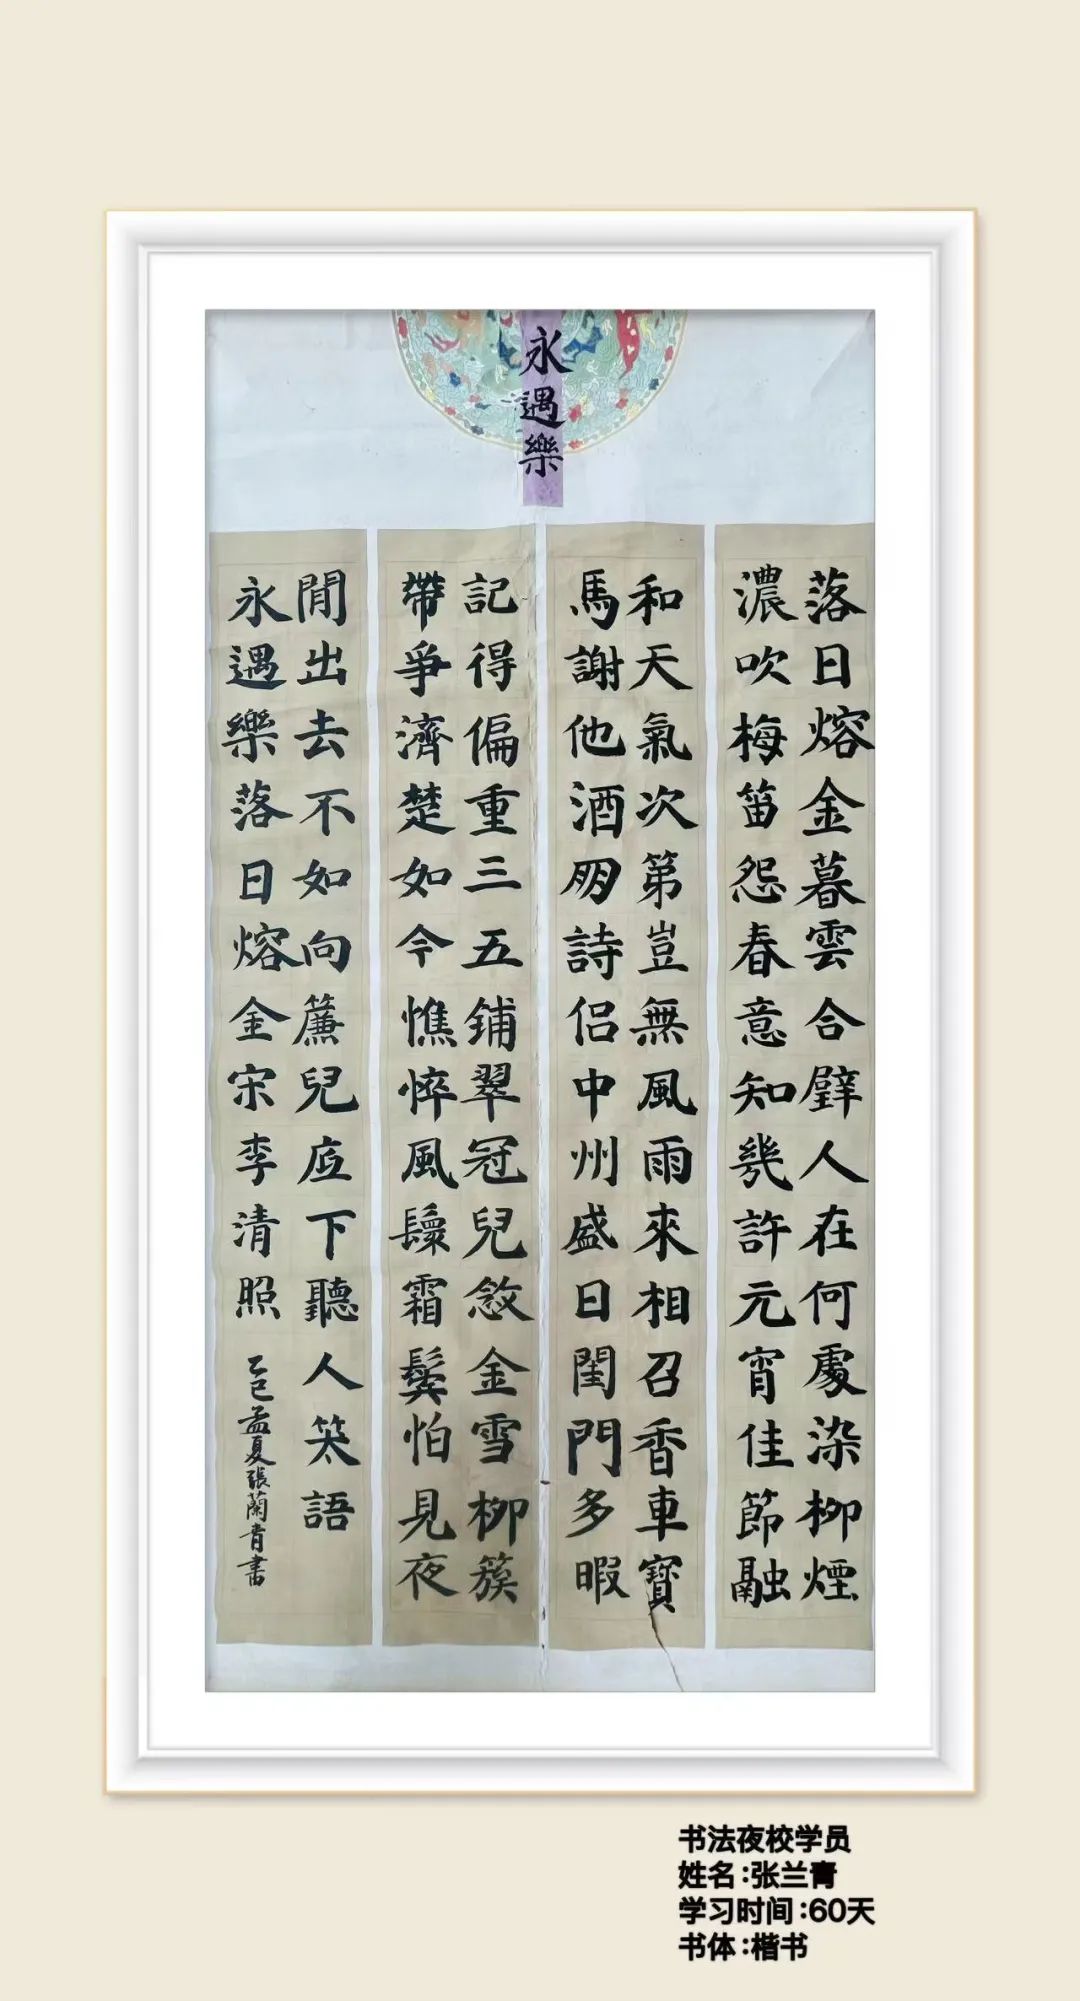 永遇樂
落日熔金暮雲合璧人在何處染柳煙
濃吹梅笛怨春意知幾許元宵佳節融
和天氣次第豈無風雨來相召香車寶
馬謝他酒朋詩侶中州盛日閨門多暇
記得偏重三五鋪翠冠兒撚金雪柳簇
帶爭濟楚如今憔悴風鬟霜鬢怕見夜
間出去不如向簾兒底下聽人笑語
永遇樂落日熔金宋李清照
乙巳孟夏張蘭青書
书法夜校学员
姓名:张兰青
学习时间:60天
书体:楷书